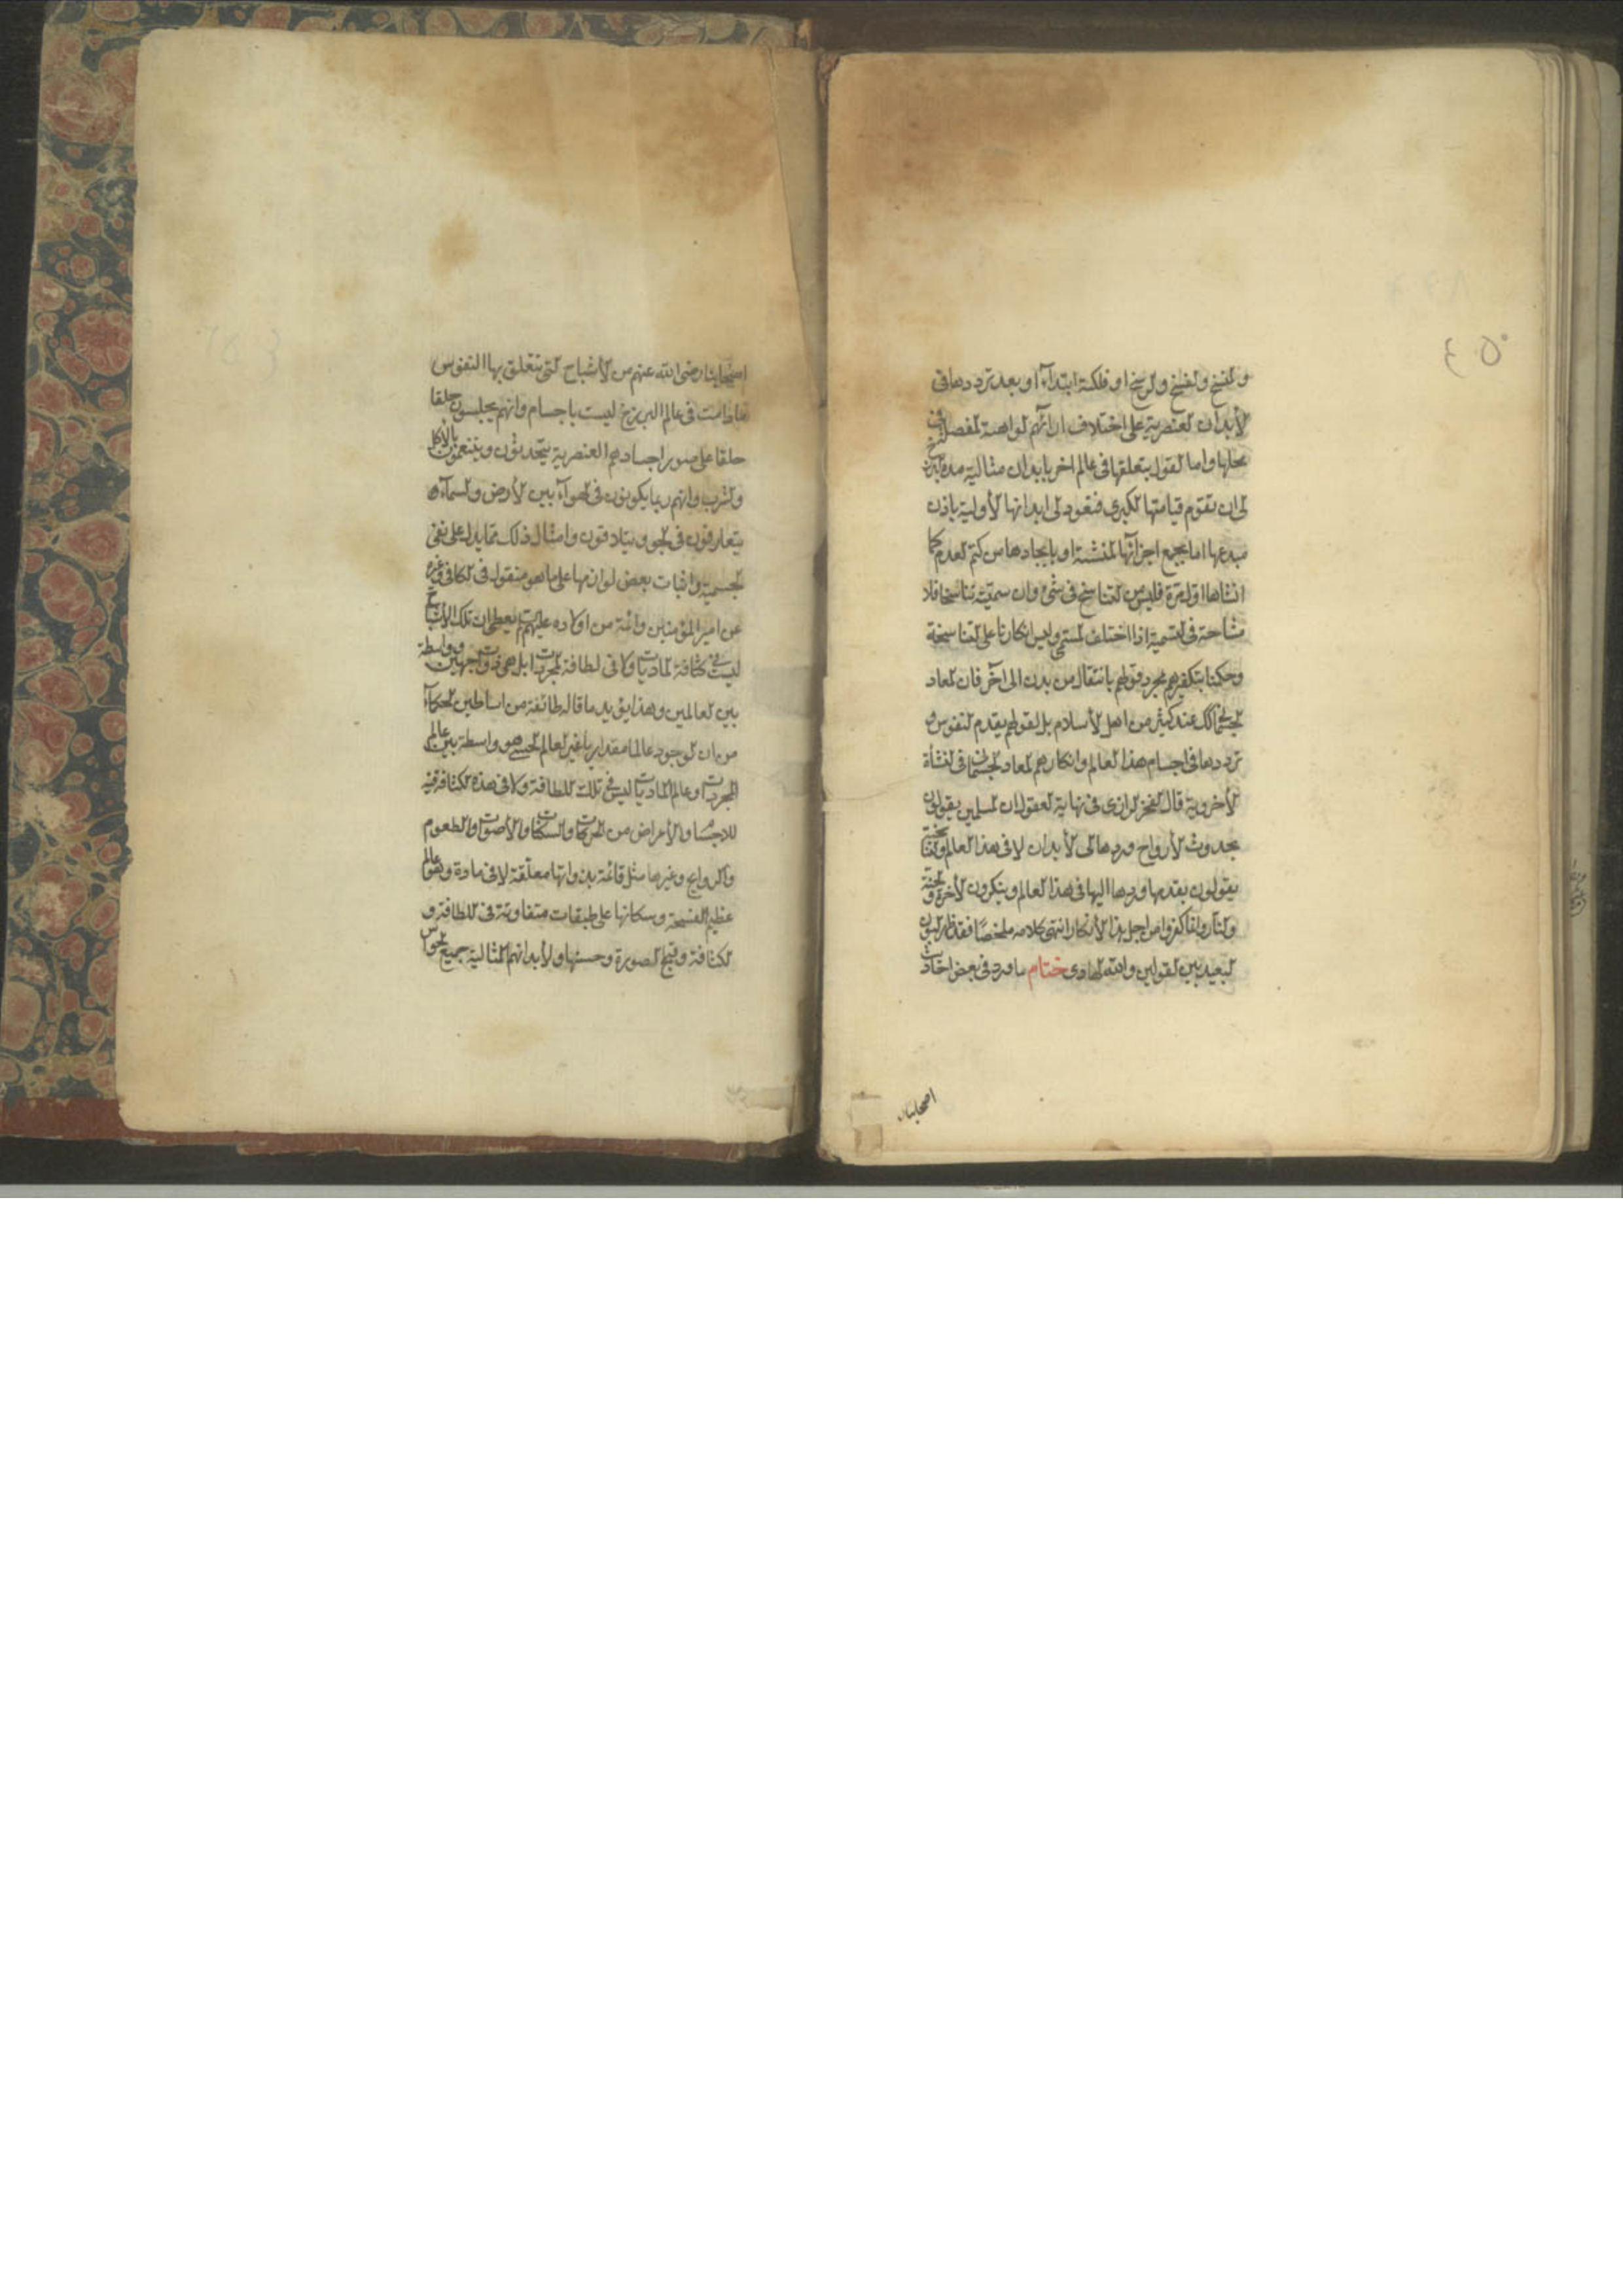 والمسخ والفسخ والرسخ او فلكية ابتداء او بعد ترددها فى
الأبدان العنصرية على اختلاف ارائهم الواهية المفصلة فى
محلها واما القول بتعلقها فى عالم اخر بابدان مثالية مدة البرزخ
الى ان تقوم قيامتها الكبرى فتعود الى ابدانها الأولية باذن
مبدعها اما بجمع اجزائها المتشتتة او بايجادها من كتم العدم كما
انشاها اول مرة فليس من التناسخ فى شئ وان سميته تناسخا فلا
مشاحة فى التسمية اذا اختلف المسمى وليس انكارنا على التناسخية
وحكمنا بتكفيرهم بمجرد قولهم بانتقال من بدن الى آخر فان المعاد
الجسمانى كذلك عند كثير من اهل الأسلام بل لقولهم بقدم النفوس و
ترددها فى اجسام هذا العالم وانكارهم المعاد الجسمانى فى النشأة
الأخروية قال الفخر الرازى فى نهاية العقول ان المسلمين يقولون
بحدوث الأرواح وردها الى الأبدان لا فى هذا العالم والتناسخية
يقولون بقدمها وردها اليها فى هذا العالم وينكرون الأخرة والجنة
والنار وانما كفروا من اجل هذا الأنكار انتهى كلامه ملخصا فقد ظهر البون
البعيد بين القولين والله الهادى ختام ما ورد فى بعض احاديث
اصحابنا
اصحابنا رضى الله عنهم من الأشباح التى تتعلق بها النفوس
ما دامت فى عالم البرزخ ليست باجسام وانهم يجلسون حلقا
حلقا على صور اجسادهم العنصرية يتحدثون ويتنعمون بالأكل
والشرب وانهم ربما يكونون فى الهواء بين الأرض والسماء
يتعارفون فى الجو ويتلاقون وامثال ذلك مما يدل على نفى
الجسمية واثبات بعض لوازمها على ما هو منقول فى الكافى وغيره
عن امير المؤمنين وائمة من اولاده عليهم يعطى ان تلك الأشباح
ليست فى كثافة الماديات ولا فى لطافة المجردات بل هى ذوات جهتين وواسطة
بين العالمين وهذا يؤيد ما قاله طائفة من اساطين الحكماء
من ان الوجود عالما مقداريا غير العالم الحسى هو واسطة بين عالم
المجردات وعالم الماديات ليس فى تلك اللطافة ولا فى هذه الكثافة فيه
للاجسام والأعراض من الحركات والسكنات والأصوات والطعوم
والروايح وغيرها مثل قائمة بذواتها معلقة لا فى مادة وهو عالم
عظيم الفسحة وسكانها على طبقات متفاوتة فى اللطافة و
الكثافة وقبح الصورة وحسنها ولأبدانهم المثالية جميع الحواس
٤٥٠